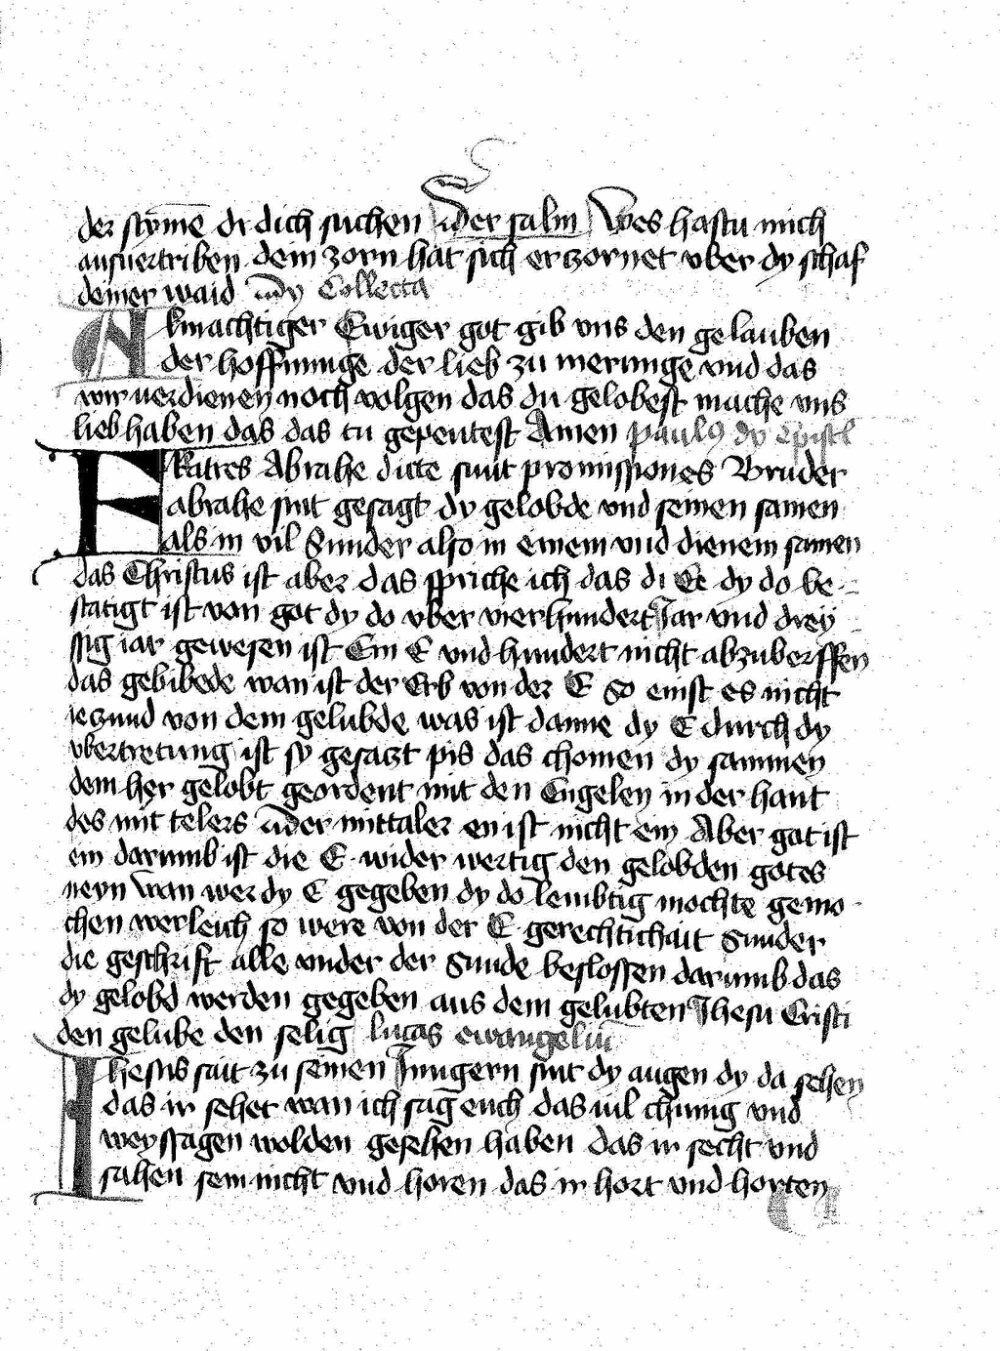 der stymē dr dich suchen der salm Wes hastu mich
ausuertriben dein zorn hat sich erzornet vber dy schaf
deiner waid dy Collecta
Almachtiger Ewiger got gib vns den gelauben
der hoffnunge der lieb zu merunge vnd das
wir verdienen noch volgen das du gelobest mache vns
lieb haben das das tu gepeutest Amen paulus dy Epistl
Fratres Abrahe dicte sunt promissiones Bruder
abrahe sint gesagt dy gelobde vnd seinen samen
als in vil Sunder also in einem vnd dienem samen
das Christus ist aber das spriche ich das di Ee dy do be-
statigt ist von got dy do vber vierhundert Jar vnd drey
ssig iar gewesen ist Ein E vnd hundert nicht abzuberffen
das gebibede wan ist der Erb von der E So einst es nicht
iczund von dem gelubde was ist danne dy E durch dy
vbertretung ist sy gesaczt pis das chomen dy sammen
dem her gelobt geordent mit den Engelen in der hant
des mit telers der mittaler en ist nicht ein Aber got ist
ein darumb ist die E wider wertig den gelobden gotes
neyn wan wer dy E gegeben dy do lembtig mochte gemo-
chen werleich so were von der E gerechtichait Sunder
die geschrift alle vnder der Sunde beslossen darumb das
dy gelobd werden gegeben aus dem gelubten Jhesu Cristi
den gelube den selig lucas ewangeliū
Ihesus sait zu seinen Jungern sint dy augen dy da sehen
das ir sehet wan ich sag euch das vil chunig vnd
weyssagen wolden gesehen haben das ir secht vnd
sahen sein nicht vnd horen das ir hort vnd horten